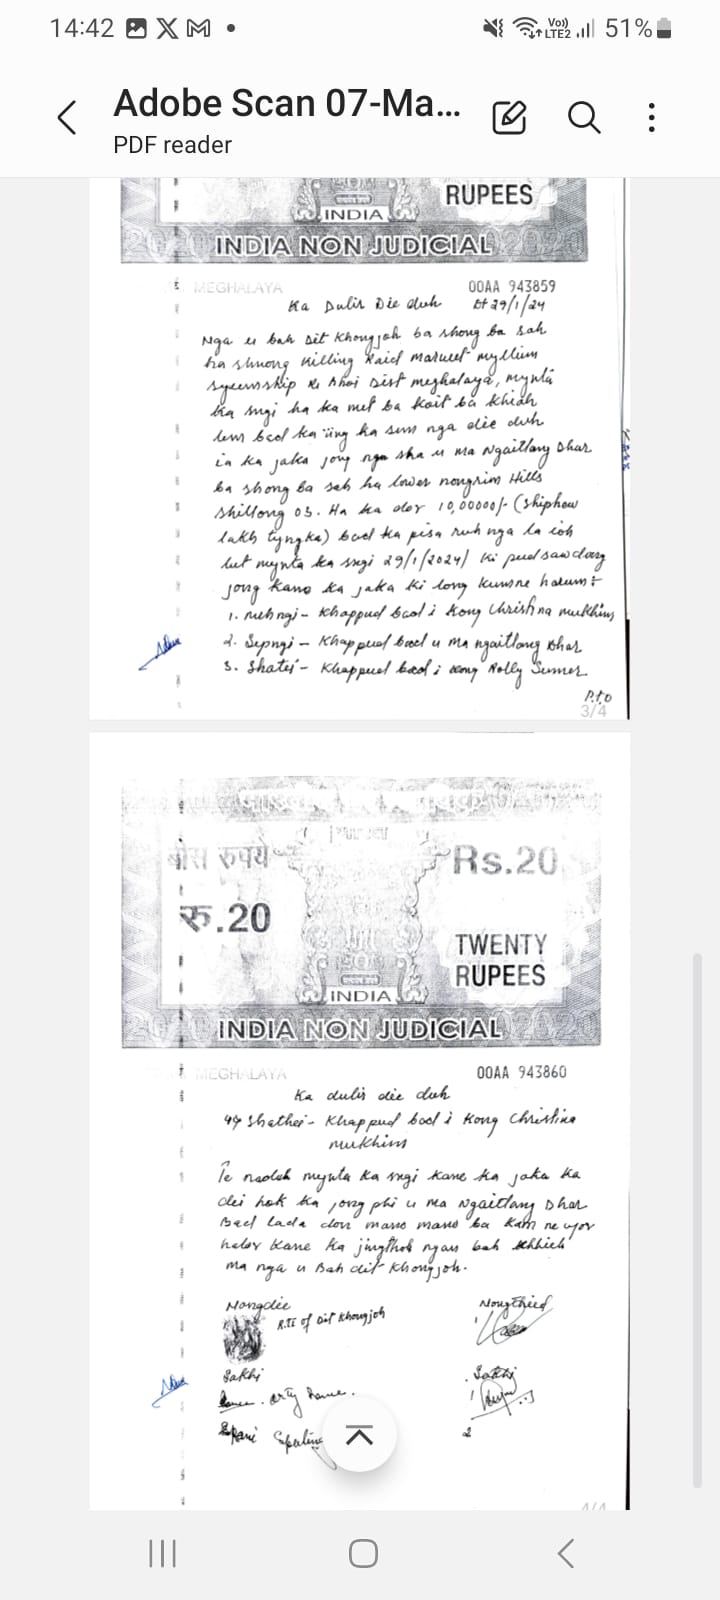 14:42
51%
Adobe Scan 07-Ma...
PDF reader
RUPEES
INDIA
INDIA NON JUDICIAL
MEGHALAYA 00AA 943859
Ka Dulir Die duh Dt 29/1/24
Nga u bah Dit Khongjoh ba shong ba sah
ha shnong Killing Raid Marwet Mylliem
Syiemship Ri Bhoi Dist Meghalaya, mynta
ka sngi ha ka met ba koit ba khiah
lem bad ka iing ka sem nga die duh
ia ka jaka jong nga sha u ma Ngaitlang Dhar
ba shong ba sah ha lower nongrim Hills
Shillong 03. Ha ka dor 10,00000/- (Shiphew
lakh tyngka) bad ka pisa ruh nga la ioh
lut mynta ka sngi 29/1/2024) Ki pud sawdong
jong kane ka jaka ki long kumne harum:
1. Mihngi - Khappud bad i Kong Christina Mukhim
2. Sepngi - Khappud bad u Ma Ngaitlang Dhar
3. Shatei - Khappud bad i Kong Nolly Sumer
P.t.o
3/4
बीस रुपये Rs.20
रु.20
TWENTY
RUPEES
INDIA
INDIA NON JUDICIAL
MEGHALAYA 00AA 943860
Ka dulir die duh
4. Shathei - Khappud bad i Kong Christina
Mukhim
Te naduh mynta ka sngi kane ka jaka ka
dei hok ka jong phi u ma Ngaitlang Dhar
Bad lada don mano mano ba kam ne ujor
halor kane ka jingthoh ngan bah khlieh
ma nga u Bah dit Khongjoh.
Nongdie Nongthied
R.T.I of Dit Khongjoh
Sakhi Sakhi
1
2
4/4